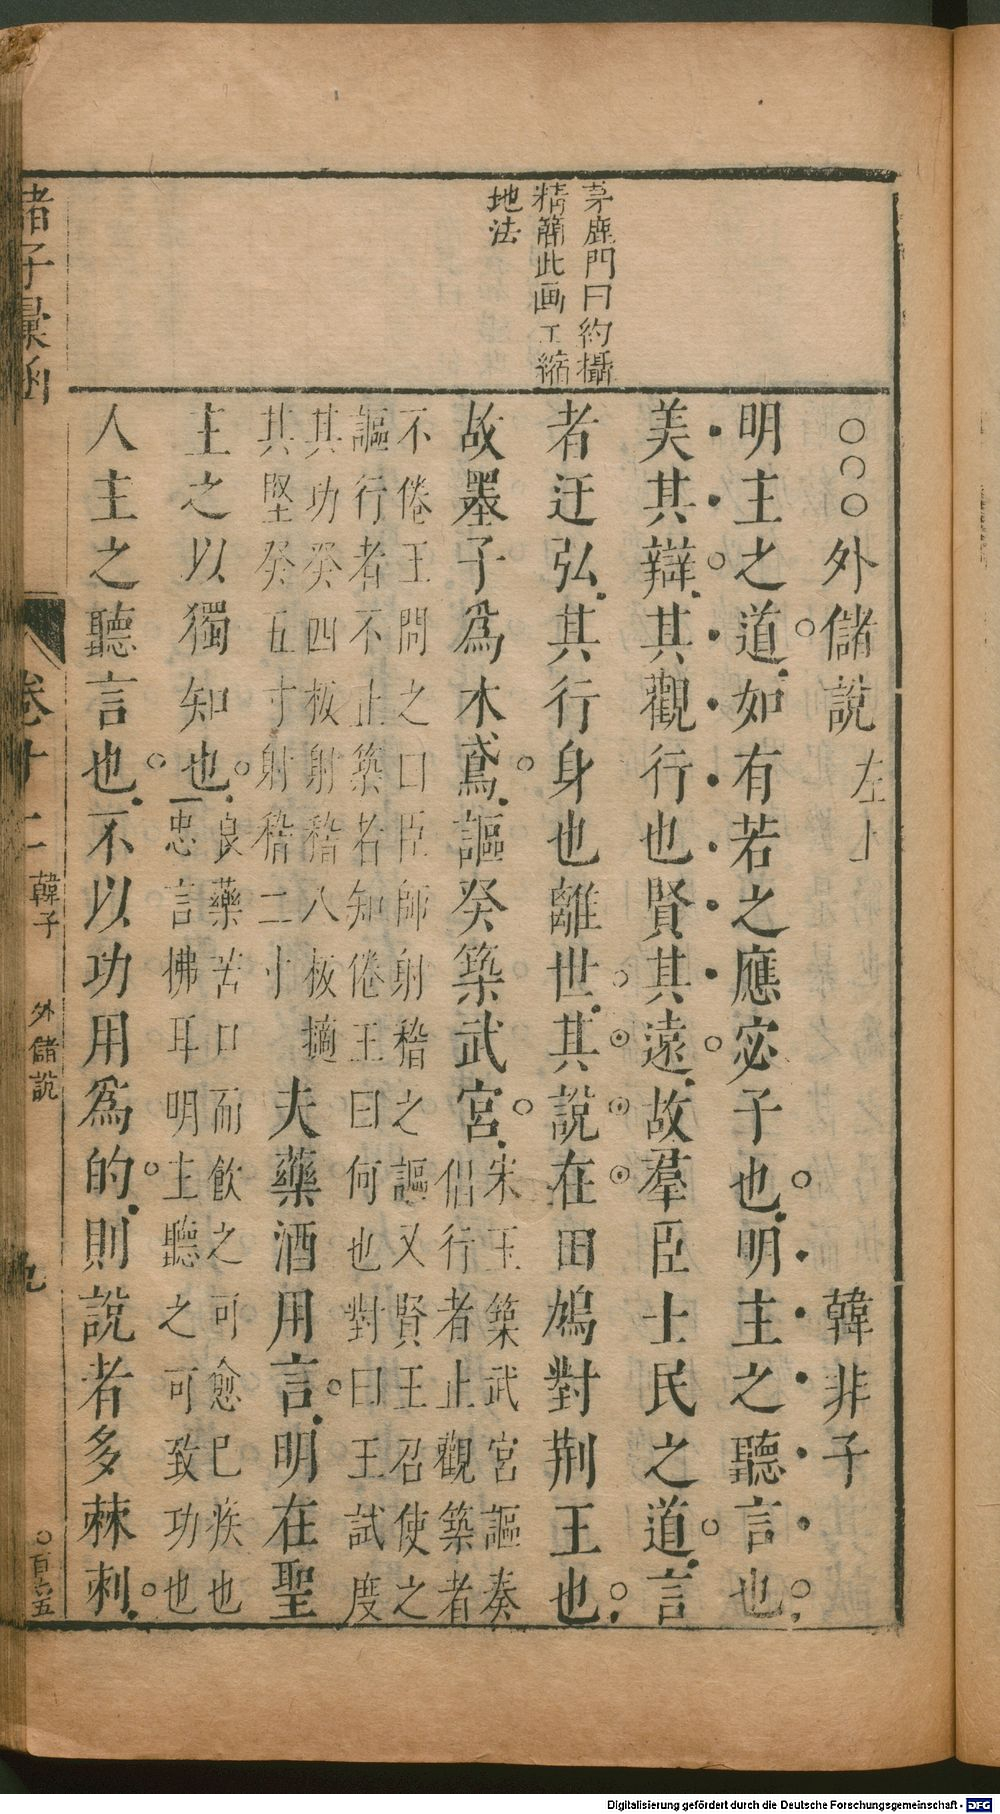 茅鹿門曰約攝
精簡此画工縮
地法
○○○外儲說左上 韓非子
明主之道如有若之應宓子也明主之聽言也
美其辯其觀行也賢其遠故羣臣士民之道言
者迂弘其行身也離世其說在田鳩對荆王也
故墨子爲木鳶謳癸築武宮
宋王築武宮謳奏
倡行者止觀築者
不倦王問之曰臣師射稽之謳又賢王召使之
謳行者不止築者知倦王曰何也對曰王試度
其功癸四板射稽八板擿
其堅癸五寸射稽二寸
夫藥酒用言明在聖
主之以獨知也
良藥苦口而飲之可愈已疾也
忠言拂耳明主聽之可致功也
人主之聽言也不以功用爲的則說者多棘刺
諸子彙函
卷十二 韓子 外儲說 九 ○百六五
Digitalisierung gefördert durch die Deutsche Forschungsgemeinschaft - DFG